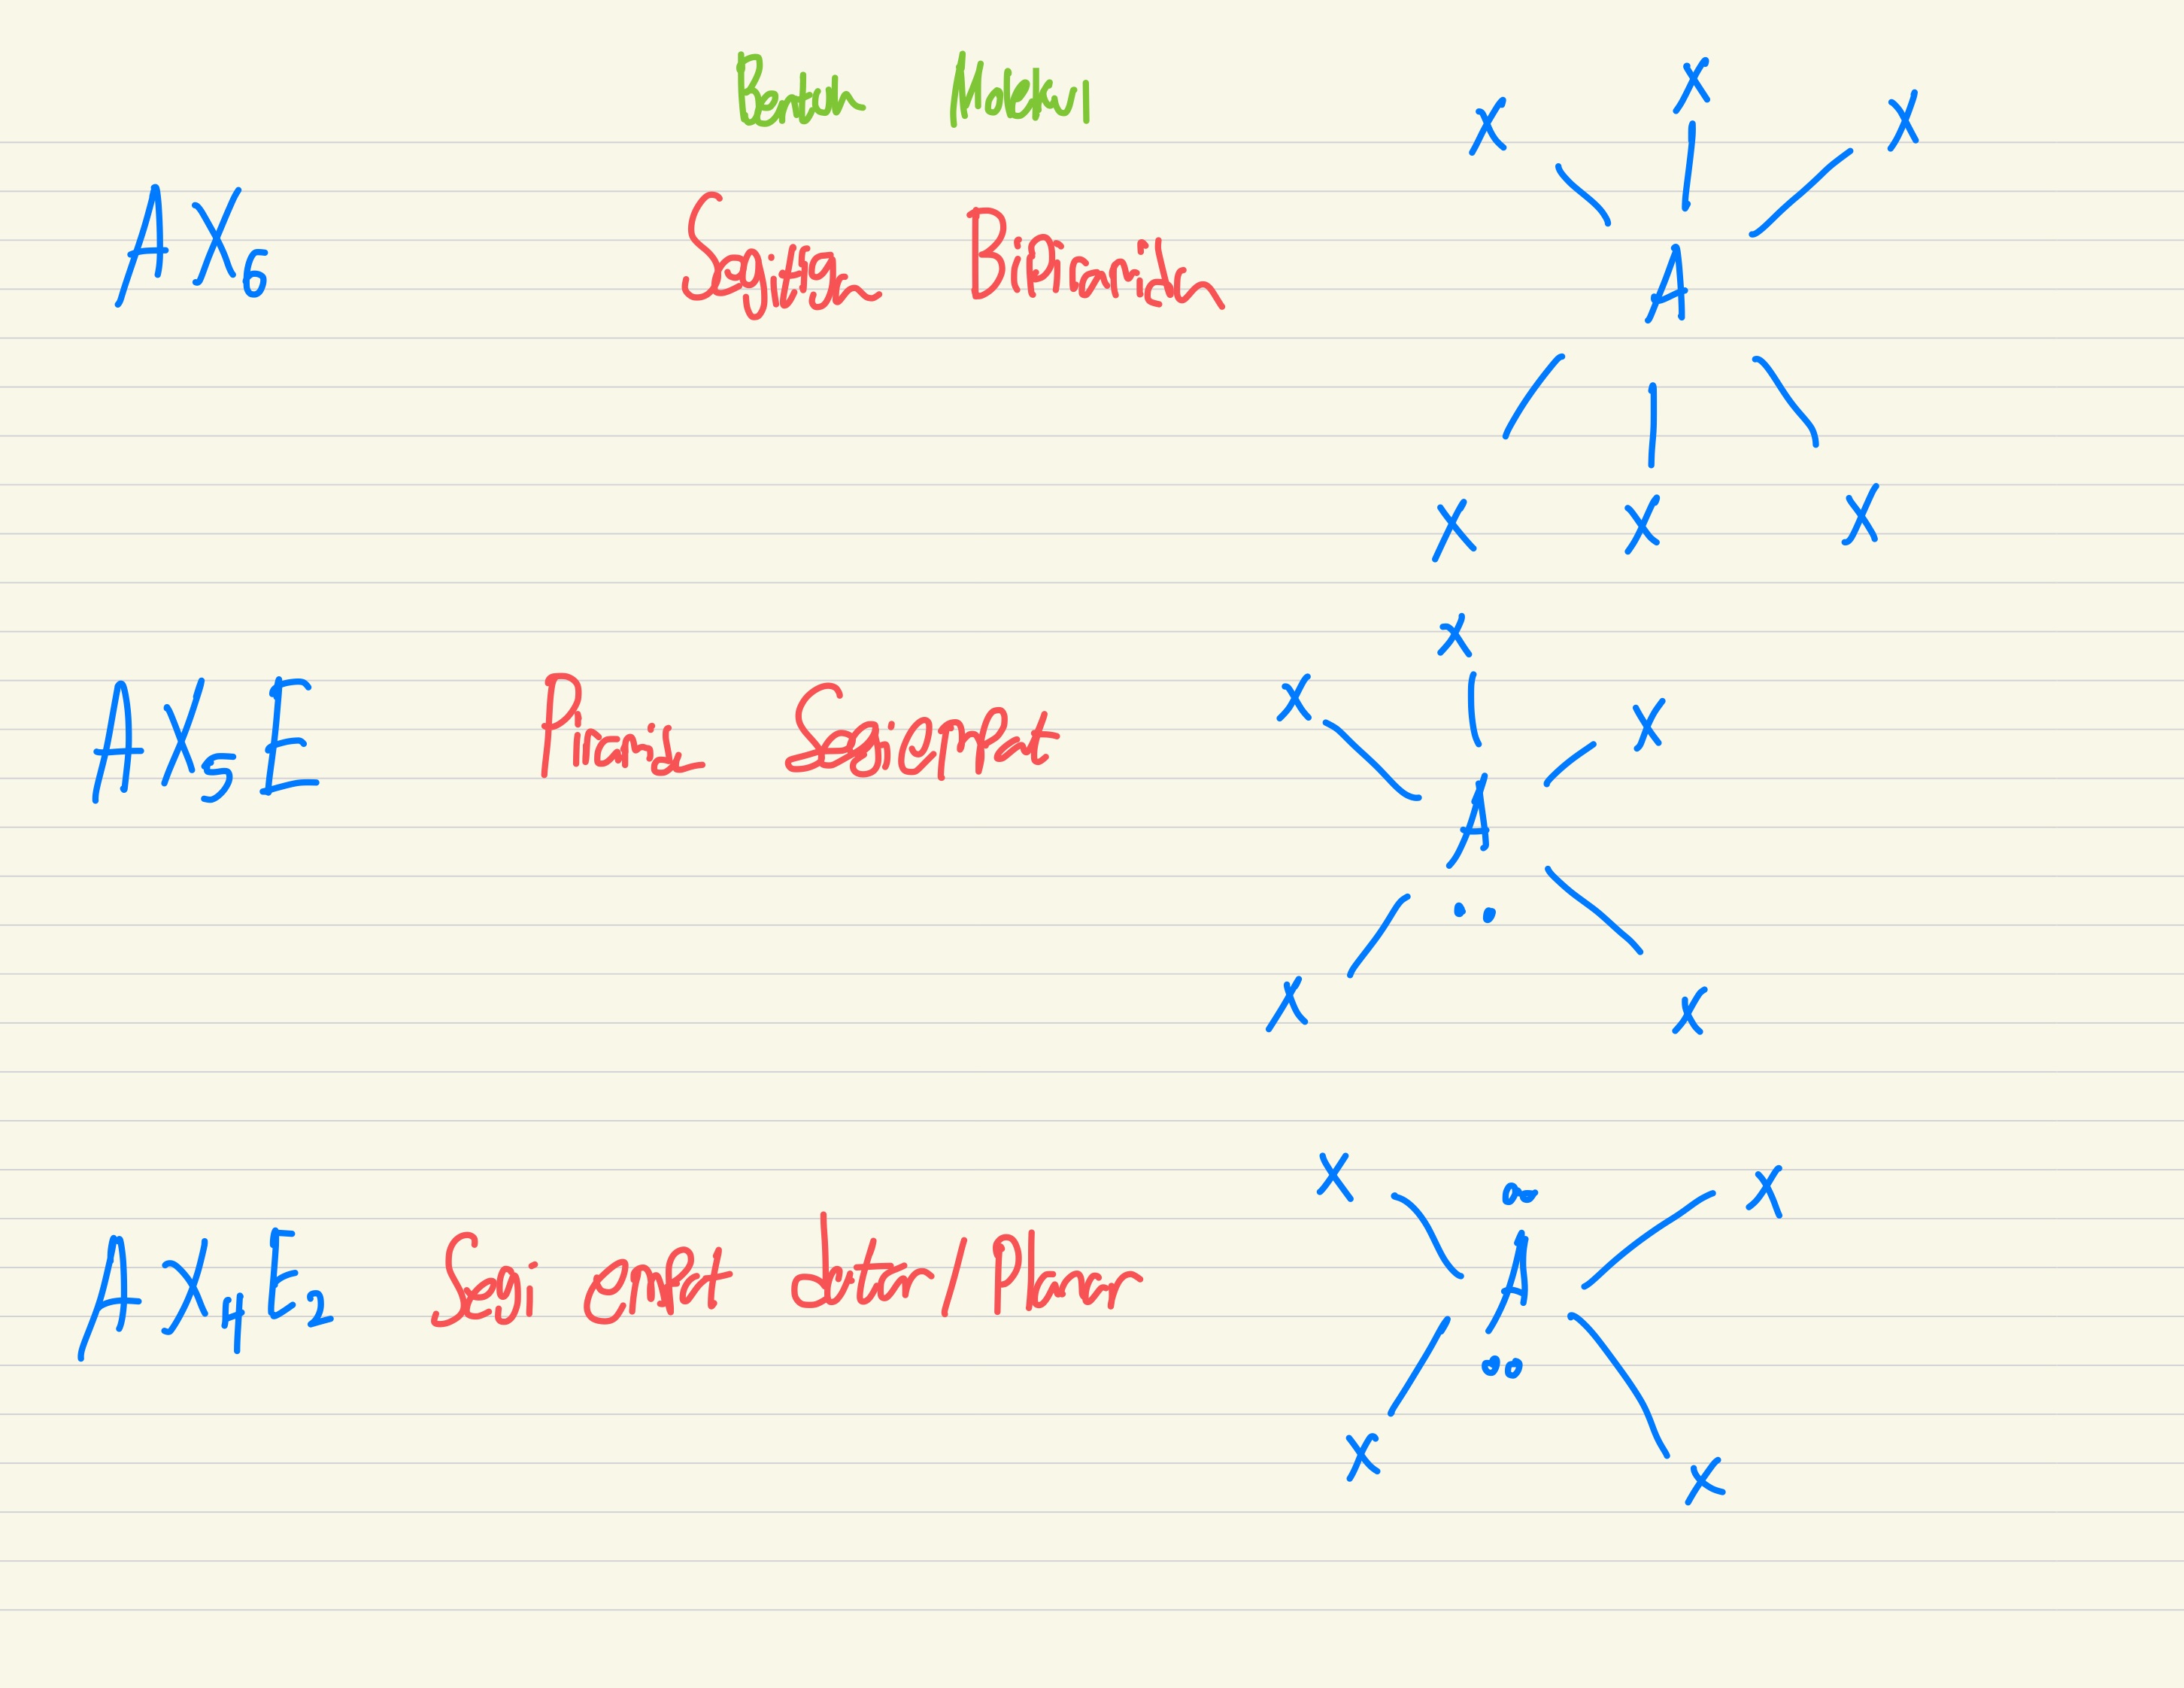 Bentuk Molekul
AX6 Segitiga Bipiramida
X X X
A
X X X
AX5E Piramida Segiempat
X
X X
A
X X
AX4E2 Segi empat datar / Planar
X X
A
X X